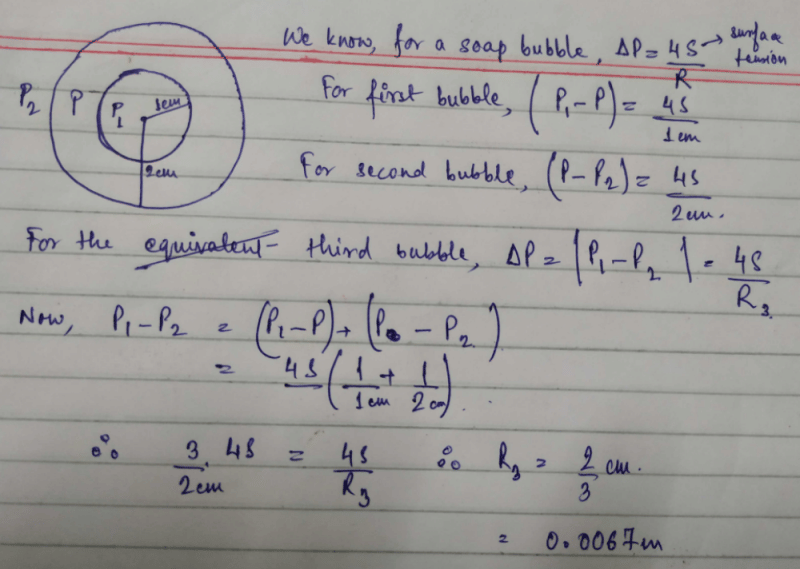 We know, for a soap bubble, ΔP = 4S/R → surface tension
P2 P P1 1cm 2cm
For first bubble, (P1 - P) = 4S/1cm
For second bubble, (P - P2) = 4S/2cm.
For the equivalent third bubble, ΔP = |P1 - P2| = 4S/R3.
Now, P1 - P2 = (P1 - P) + (P - P2)
= 4S (1/1cm + 1/2cm).
∴ 3/2cm . 4S = 4S/R3 ∴ R3 = 2/3 cm.
= 0.0067m